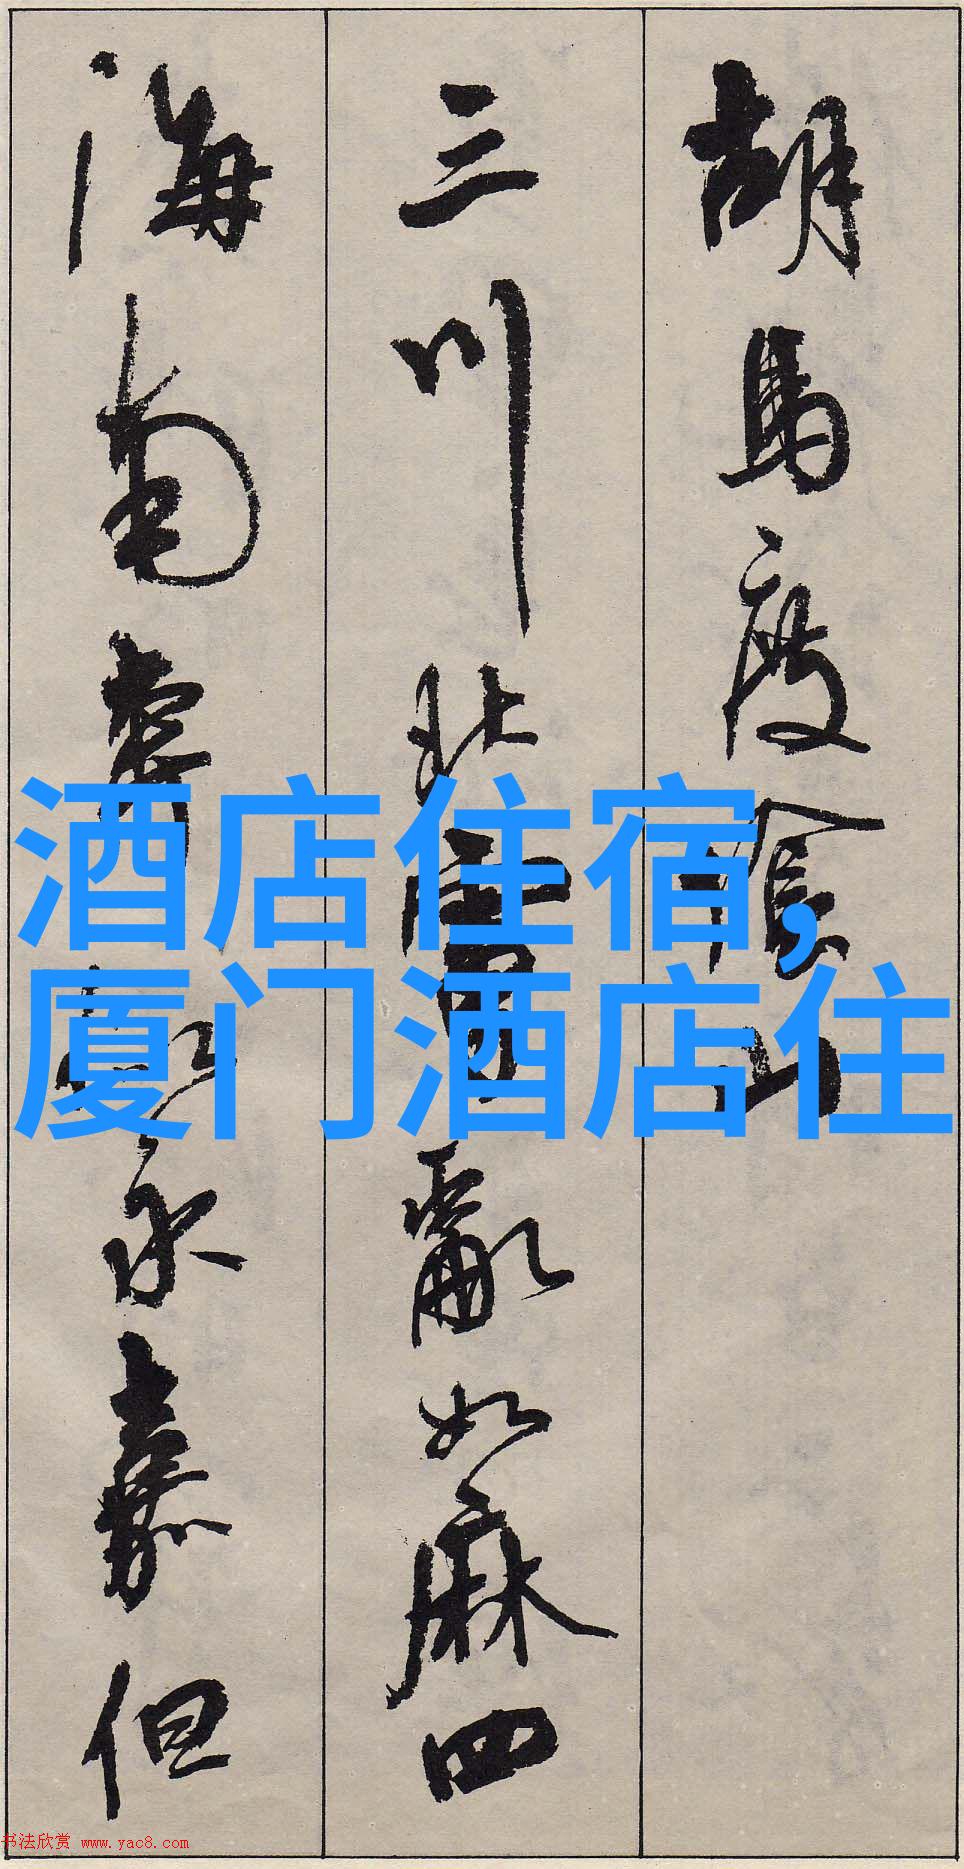 胡马度阴山
三川北虏乱如麻四
海南奔似永嘉但
酒店住宿,
厦门酒店住
书法欣赏 www.yac8.com